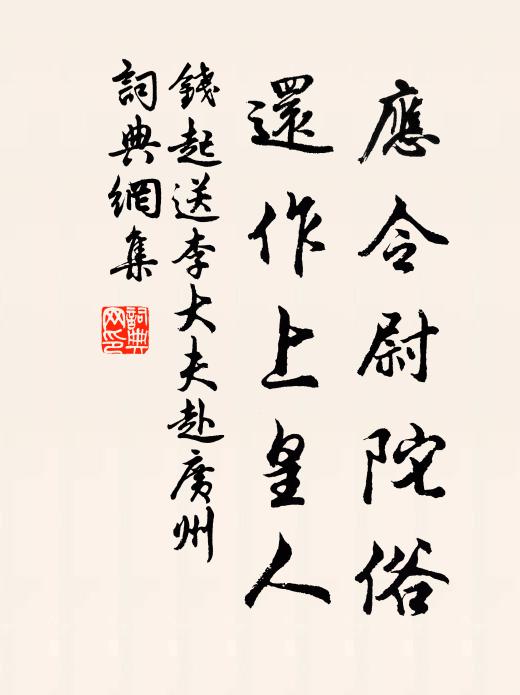 應令尉陀俗
還作上皇人
錢起送李大夫赴廣州
詞典網集
詞典
网印